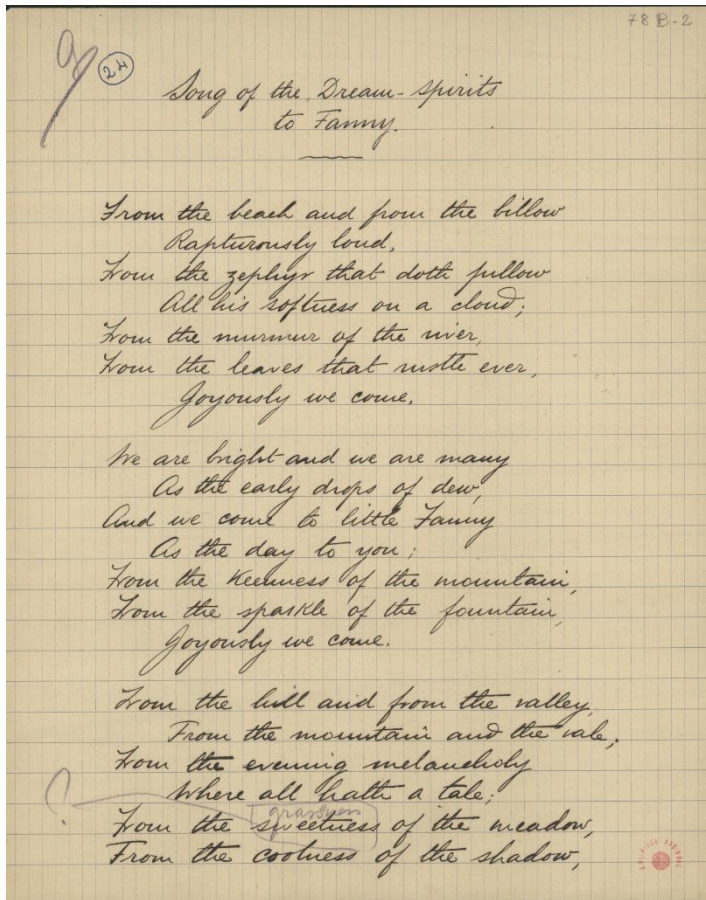 78B-2
24
Song of the Dream-Spirits
to Fanny.
From the beach and from the billow
Rapturously loud,
From the zephyr that doth pillow
All his softness on a cloud;
From the murmur of the river,
From the leaves that rustle ever,
Joyously we come.
We are bright and we are many
As the early drops of dew,
And we come to little Fanny
As the day to you;
From the keenness of the mountain,
From the sparkle of the fountain,
Joyously we come.
From the hill and from the valley,
From the mountain and the vale;
From the evening melancholy
Where all hath a tale;
? grassness
From the sweetness of the meadow,
From the coolness of the shadow,